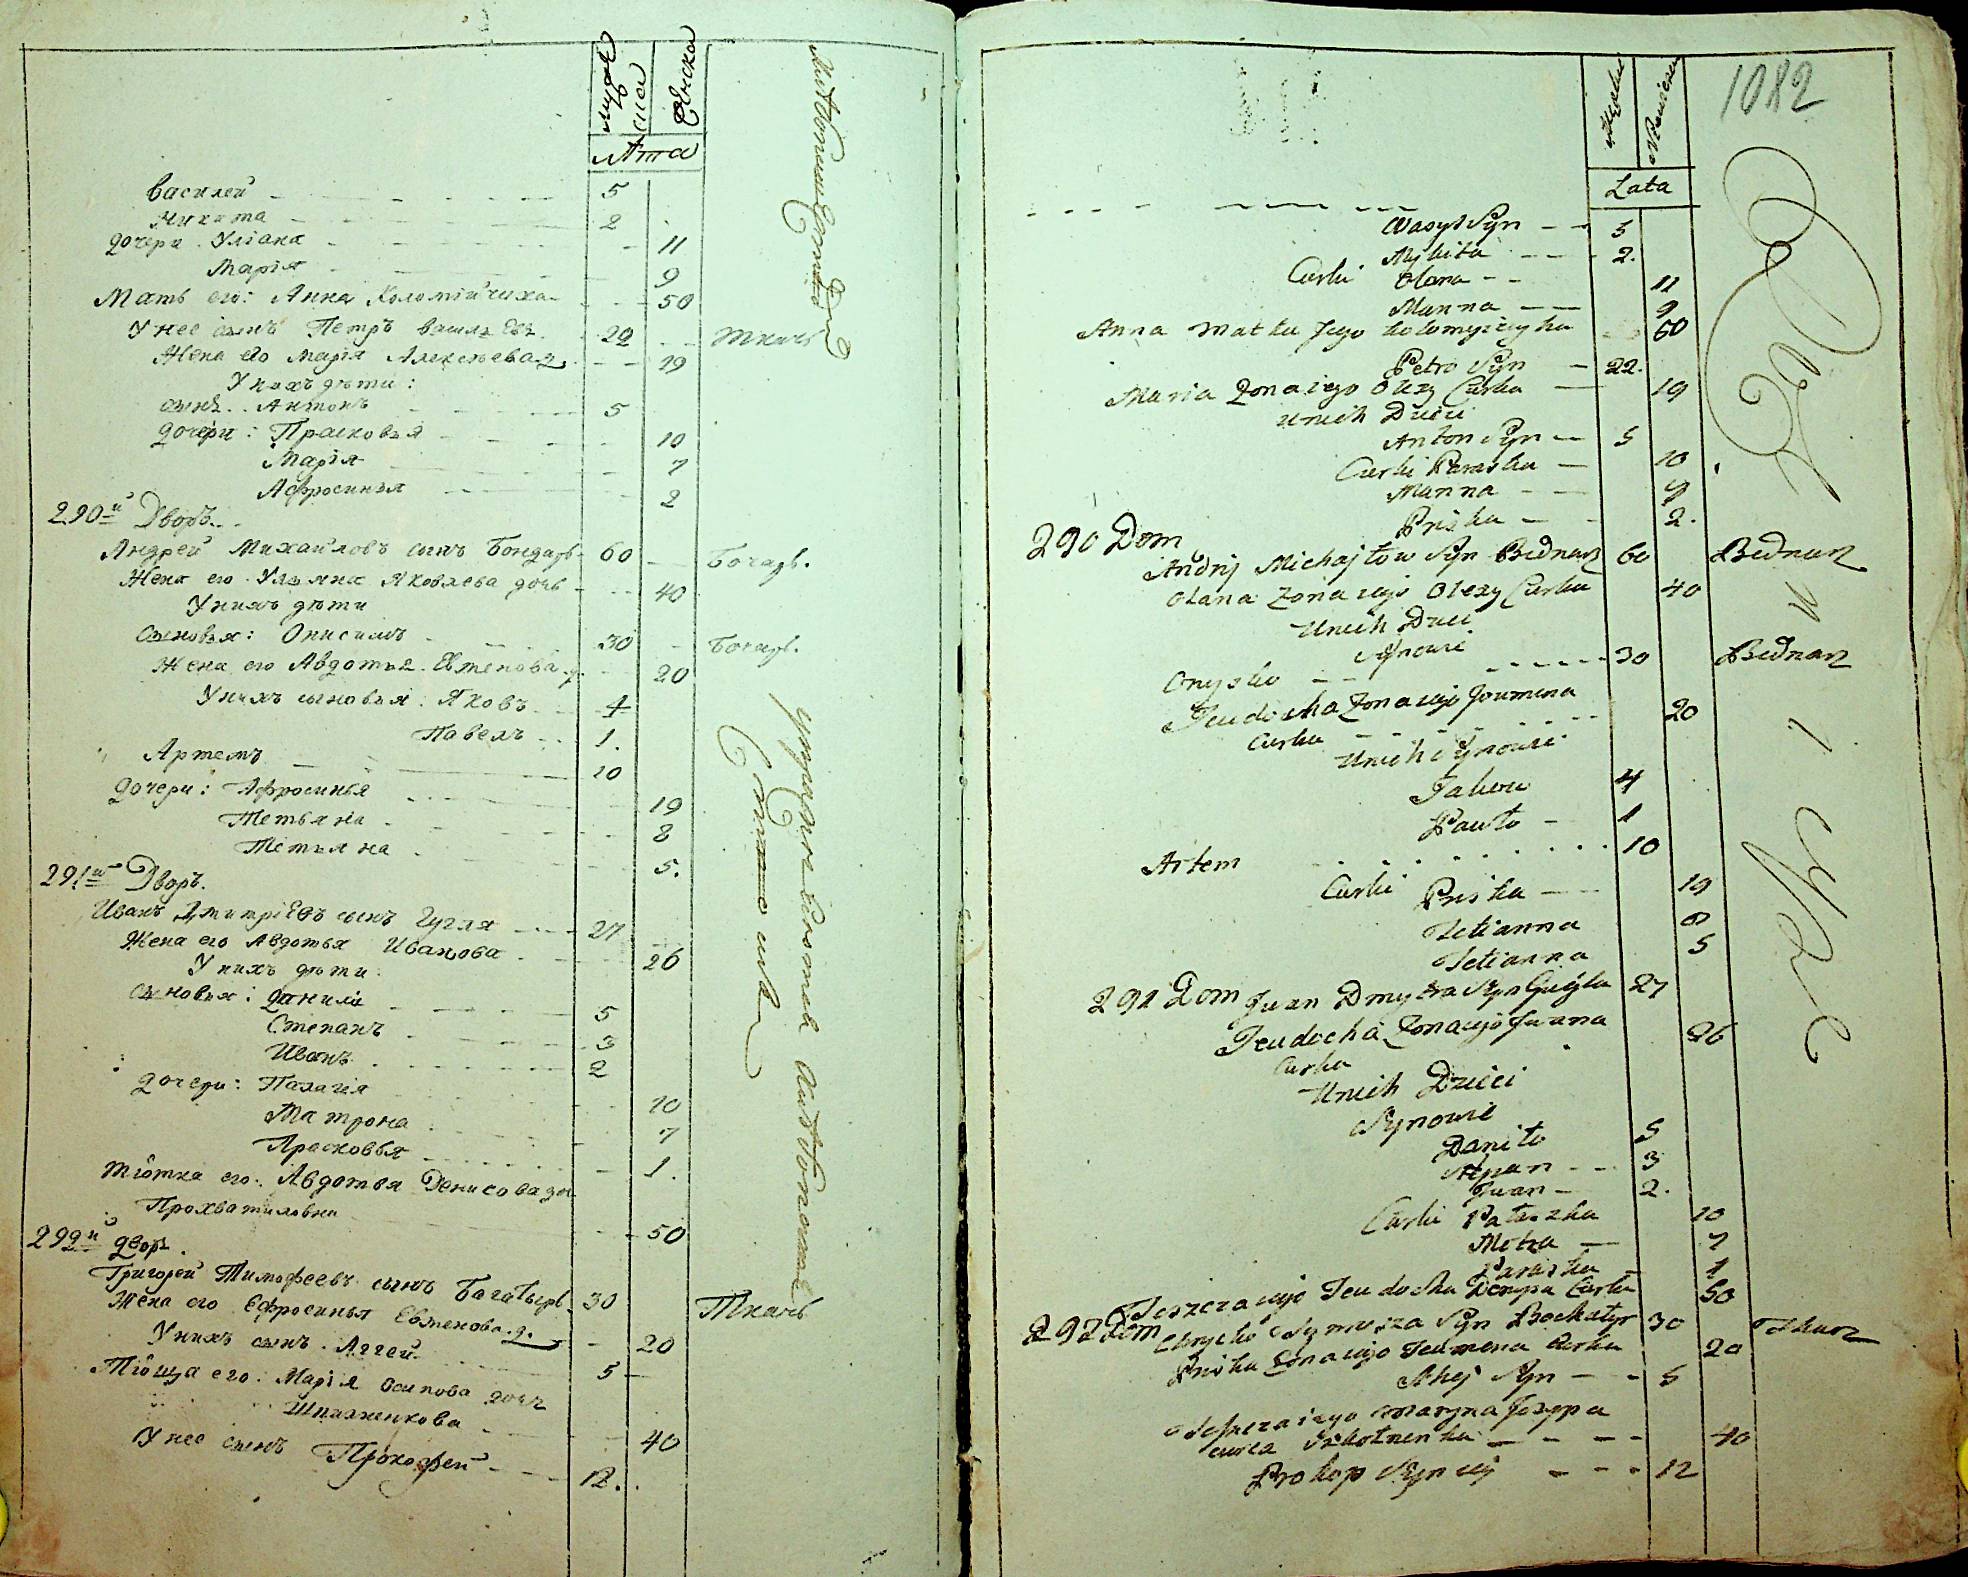 мужеска
женска
Лѣта
Василей 5
Никита 2
дочери: Улiана 11
Марiя 9
Мать его: Анна Коломiйчиха 50
У нее сынъ Петръ Васильевъ 22 Ткачь
Жена его Марiя Алексѣева д. 19
У нихъ дѣти:
сынъ: Антонъ 5
дочери: Прасковья 10
Марiя 7
Афросинья 2
290й Дворъ.
Андрей Михайловъ сынъ Бондарь 60 Бочарь.
Жена его Ульяна Яковлева дочь 40
У нихъ дѣти
сыновья: Онисимъ 30 Бочарь.
Жена его Авдотья Евменова д. 20
У нихъ сыновья: Яковъ 4
Павелъ 1.
Артемъ 10
дочери: Афросинья 19
Тетьяна 8
Тетьяна 5.
291й Дворъ.
Иванъ Дмитрiевъ сынъ Гугля 27
Жена его Авдотья Иванова 26
У нихъ дѣти:
сыновья: Данило 5
Степанъ 3
Иванъ 2
дочери: Палагiя 10
Матрона 7
Прасковья 1.
Тiотка его: Авдотья Денисова доч.
Прохватиловна 50
292й дворъ.
Григорей Тимофеевъ сынъ Багатырь 30 Ткачь
Жена его Ефросинья Евменова д. 20
У нихъ сынъ Аггей 5
Тiоща его: Марiя Осипова дочь
Шпаленкова 40
У нее сынъ Прокофей 12.
1082
Męzkie
Niewieskie
Lata
Wasyl Syn 5
Mykita 2.
Curki Olana 11
Manna 9
Anna Matka Jego Kolomyiczycha 60
Petro Syn 22.
Maria Zona iego Olexy Curka 19
Unich Dzieci
Anton Syn 5
Curki Paraska 10
Manna 7
Priska 2.
290 Dom
Andrij Michajłow Syn Bednarz 60 Bednarz
Olana Zona iego Olexy Curka 40
Unich Dzieci
Synowie
Onysko 30 Bednarz
Jeudocha Zona iego Joumena 20
Curka
Unich Synowie
Jakow 4
Pawło 1
Artem 10
Curki Priska 19
Tetianna 8
Tetianna 5
291 Dom Jwan Dmytra Syn Gugla 27
Jeudocha Zona iego Jwana 26
Curka
Unich Dzieci
Synowie
Daniło 5
Stepan 3
Jwan 2.
Curki Pałaszka 10
Motra 7
Paraska 1
Teszcza iego Jeudocha Denysa Curka 50
292 Dom Chryćko Tymosza Syn Bochatyr 30 Tkacz
Priska Zona iego Jeumena Curka 20
Ahej Syn 5
Teszcza iego Maryna Jozypa
curka 40
Prokop Syn iey 12